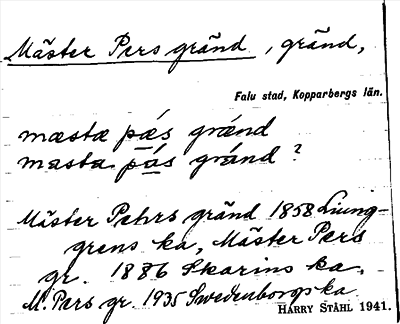 Mäster Pers gränd, gränd,
Falu stad, Kopparbergs län.
mæstæ pǽs grǽnd
masta pás gránd?
Mäster Pehrs gränd 1858 Ljung-
grens ka, Mäster Pers
gr. 1886 Skarins ka,
M. Pers gr. 1935 Swedenborgs ka
HARRY STÅHL 1941.